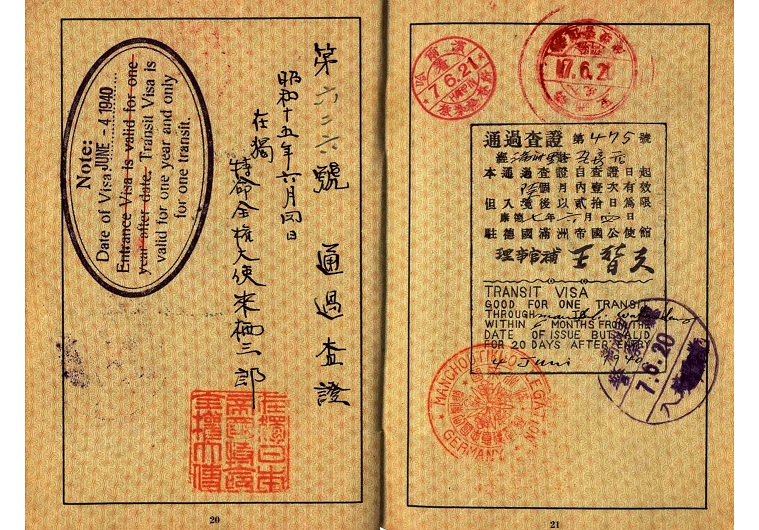 Note:
Date of Visa JUNE - 4 1940
Entrance Visa is valid for one
year after date. Transit Visa is
valid for one year and only
for one transit.
第六二六號 通過查證
昭和十五年六月四日
在獨
特命全權大使来栖三郎
在獨日本
帝國特命
全權大使
20
7.6.21
7.6.21
通過查證 第475號
經
本通過查證自查證日起
個月內壹次有效
但入境後以貳拾日為限
康德七年六月四日
駐德國滿洲帝國公使館
理事官補 王替夫
TRANSIT VISA
GOOD FOR ONE TRANSIT
THROUGH
WITHIN 6 MONTHS FROM THE
DATE OF ISSUE BUT VALID
FOR 20 DAYS AFTER ENTRY
4 Juni 1940
7.6.20
MANCHOUTIKUO LEGATION
GERMANY
21